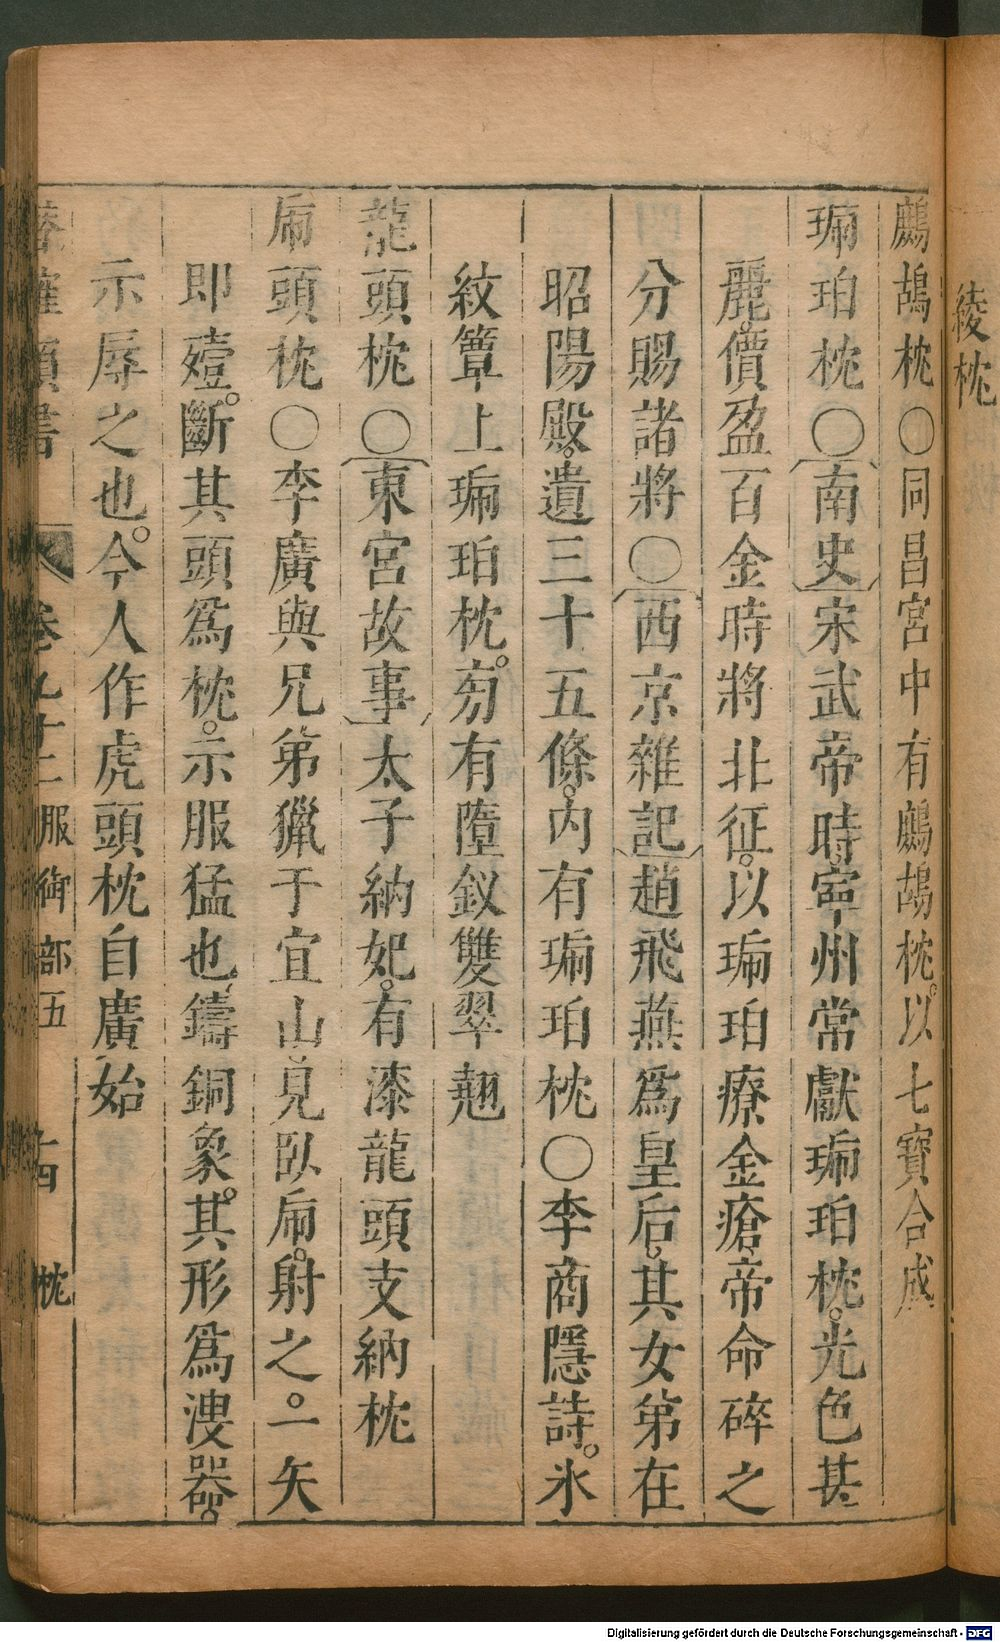 綾枕
鷓鴣枕○同昌宮中有鷓鴣枕以七寶合成
琥珀枕○南史宋武帝時寧州常獻琥珀枕光色甚
麗價盈百金時將北征以琥珀療金瘡帝命碎之
分賜諸將○西京雜記趙飛燕為皇后其女第在
昭陽殿遺三十五條內有琥珀枕○李商隱詩水
紋簟上琥珀枕旁有墮釵雙翠翹
龍頭枕○東宮故事太子納妃有漆龍頭支納枕
虎頭枕○李廣與兄第獵于宜山見臥虎射之一矢
即殪斷其頭為枕示服猛也鑄銅象其形為溲器
示辱之也今人作虎頭枕自廣始
類書 卷九十二服御部五 十四 枕
Digitalisierung gefördert durch die Deutsche Forschungsgemeinschaft - DFG